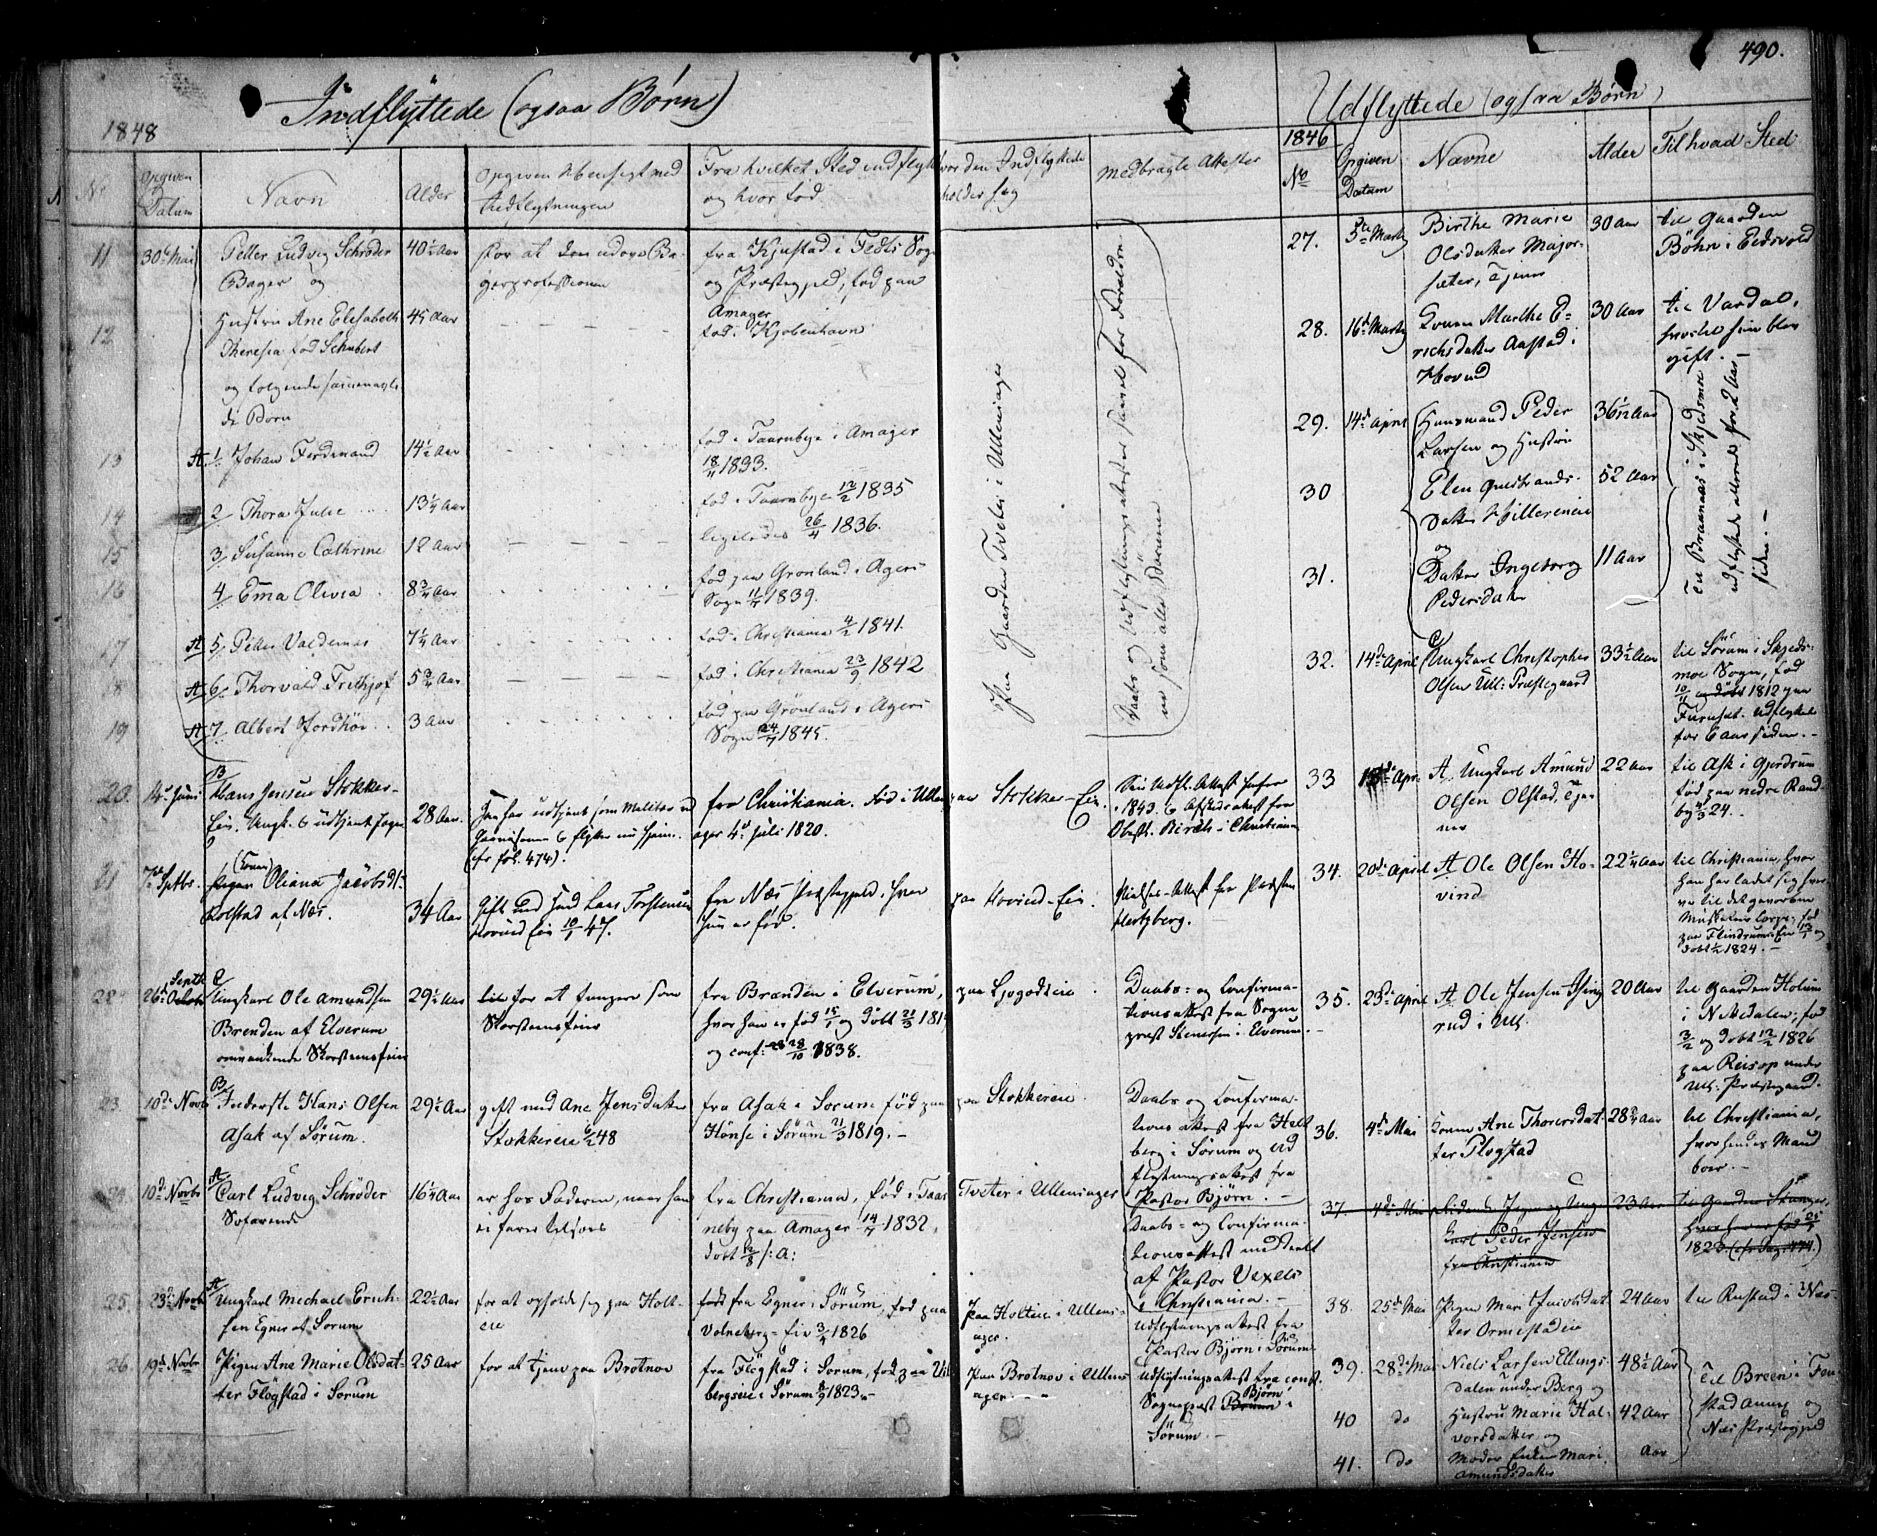 490.
Indflyttede (ogsaa Børn)
1848
No
Opgiven Datum
Navn
Alder
Opgiven Hensigt med Indflytningen
Fra hvilket Sted indflyttet og hvor fød
hvor den Indflyttede holder sig
Medbragte Attester
11
30te Mai
Petter Ludvig Schrøder
Bager og
40½ Aar
for at den udøve Ba-
gerprofessionen
fra Kjustad i Feds Sogn
og Præstegjeld, fød paa
Amager
12
Hustru Ane Elisabeth
Theresia fød Schubert
og følgende
Børn
45 Aar
fød i Kjøbenhavn
13
A 1 Johan Ferdinand
14½ Aar
fød i Taarnbye i Amager
18/11 1833.
14
2 Thora Julie
13¼ Aar
fød i Taarnbye 12/2 1835
15
3 Susanne Cathrine
12 Aar
ligeledes 26/4 1836.
16
4 Ema Olivia
8¾ Aar
fød paa Grønland i Agers
Sogn 1839.
17
A 5 Petter Valdemar
7¼ Aar
fød i Christiania 4/2 1841.
18
A 6 Thorvald Frithjof
5¾ Aar
fød i Christiania 23/9 1842
19
A 7 Albert
3 Aar
fød paa Grönland i Agers
Sogn 24/7 1845.
Paa Gaarden Tveter i Ullensager
Daabs og Udflytningsattester saavel for Foræld-
re som alle Børnene
20.
14de Juni
B
Hans Jensen Stokker-
Eie. Ungk. & udtjent Jæger
28 Aar.
Han har udtjent som Militær ved
Garnisonen & flytter nu hjem.
(cfr fol. 474).
fra Christiania. Fød i Ullens-
ager 4de Juli 1820.
paa Stokker-Eie.
i 1843. & Afskedsattest fra
Oberstl. Birch i Christiania
21
7de Septbr.
(Konen)
Pigen Oliana Jacobsdtr
Kolstad af Næs.
34 Aar
Gift med Lars Torstensen
Hovind Eie 10/1 47.
fra Næs Præstegjeld. hvor
hun er fød.
paa Hovind-Eie.
Vielses-Attest fra Præsten
Hertzberg.
22
26de Septbr Octobr
C
Ungkarl Ole Amundsen
Brenden af Elverum
omvankende Skorsteensfeier
29½ Aar
til for at fungere som
Skorstensfeier
fra Brænden i Elverum,
hvor han er fød 15/1 og døbt 21/3 1819
og conf: 28/10 1838.
paa Ljøgodteie
Daabs- og Confirma-
tionsattest fra Sogne-
præst Stenersen i Elverum.
23.
10de Novbr
B
Inderste Hans Olsen
Asak af Sørum.
29½ Aar
gift med Ane Jensdatter
Stokkereie 6/2 48
fra Asak i Sørum fød paa
Hønse i Sørum 21/3 1819.
paa Stokkereie
Daabs og Confirma-
tions attest fra Hell-
berg i Sørum og Ud-
flytningsattest fra
Pastor Bjørn.
24.
10de Novbr
A
Carl Ludvig Schrøder
Søfarende
16¼ Aar
er hos Faderen, naar han
ei farer tilsøes
fra Christiania, fød i Taar-
neby paa Amager 14/7 1832,
døbt 12/8 s: A:
Tveter i Ullensager
Daabs- og Confirma-
tionsattest meddeelt
af Pastor Vexels
i Christiania.
25.
23de Novbr
A
Ungkarl Michael Erich-
sen Egner af Sørum
22½ Aar
for at opholde sig paa Holt-
eie
fødd fra Egner i Sörum, fød paa
Valneberg-Eie 3/4 1826
Paa Holteie i Ullens-
ager.
Udflytningsattest fra
Pastor Bjørn i Sørum
26.
19de Novbr
Pigen Ane Marie Olsdat-
ter Flögstad i Sørum
25 Aar
for at tjene paa Brotnov
fra Flögstad i Sørum, fød paa
bergseie i Sørum 1823.
Paa Brotnov i Ullens-
ager
Udflytningsattest fra const.
Sognepræst Bruun Bjørn i
Sørum.
Udflyttede (ogsaa Børn)
1846
No
Opgiven Datum
Navne
Alder
Til hvad Sted
27.
5te Marts
Birthe Marie
Olsdatter Major-
sæter, Tjener
30 Aar
til Gaarden
Böhn i Eidsvold
28.
16de Marts
Konen Marthe E-
richsdatter Aastad i
Hovind
30 Aar
til Vardal,
hvortil hun blev
gift.
29.
14de April
Huusmand Peder
Larsen og Hustru
36 1/12 Aar
30
Elen Gulbrands-
datter Hillereneie
52 Aar
31.
og
Datter Ingeborg
Pedersdatter
11 Aar
Til Braanaas i Skjedsmoe
udflyttede allerede for 2 Aar
siden.
32.
14de April
C
Ungkarl Christopher
Olsen Ull: Præstegaard
33½ Aar
til Sørum i Skjeds-
moe Sogn, fød
10/11 og døbt 1812 paa
Furuset. Udflyttet
for 6 Aar siden.
33
18de Apr.
A. Ungkarl Amund
Olsen Olstad, Tje-
ner
22 Aar
til Ask i Gjerdrum
fød paa nedre Rand-
by 24.
34.
20de April
A Ole Olsen Ho-
vind
22¼ Aar
til Christiania, hvor
han har ladet sig hver-
ve til det gevorbne
Musketeer Corps, fød
paa Flindrum-Eie og
døbt 1824.
35.
23de April
A Ole Jensen
rud i Ull.
20 Aar
til Gaarden Holum
i Nittedalen, fød
3/2 og døbt 12/2 1826
paa Reisop under
Ull. Præstegaard.
36.
4de Mai
Konen Ane Thoresdat-
ter Flögstad
28¾ Aar
til Christiania,
hvor hendes Mand
boer.
37.
4de Mai
Jæger og Ung-
karl Peder Jensen
fra Christiania
23 Aar
til Gaarden
hvor han er fød
1823. (cfr Pag. 474.)
38.
25de Mai
Pigen Mari Jacobsdat-
ter Ormestadeie
24 Aar
til Rustad i Næs
39.
28de Mai
Niels Larsen Ellings-
dalen under Berg og
48½ Aar
40
do
Hustru Marie Hal-
vorsdatter og
42 Aar
41.
do
Moder Enken Mari
Amundsdatter
Aar
Til Breen i Fen-
stad Annex og
Næs Præstegjeld